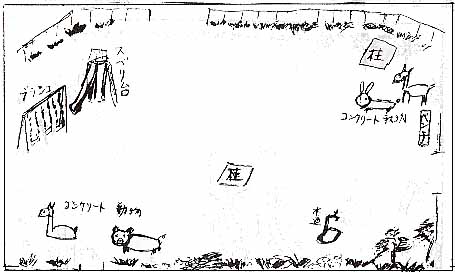 スベリ台
ブランコ
柱
コンクリート動物
ベンチ
柱
コンクリート 動物
水道